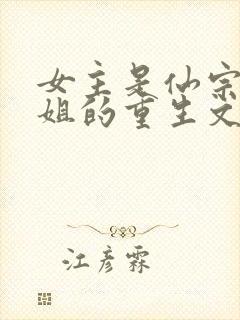 女主是仙宗
姐的重生文
江彦霖